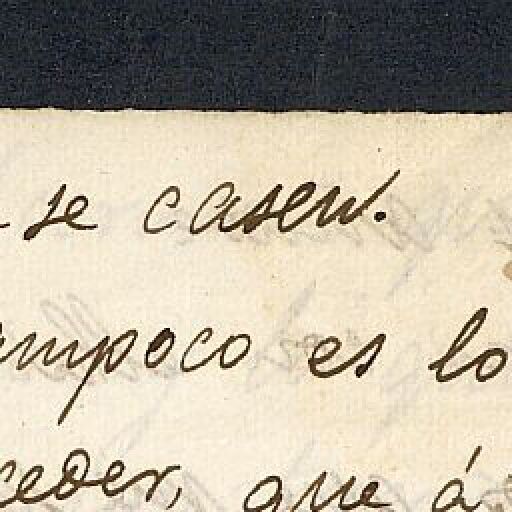 se casen.
ampoco es lo
ceder, que á